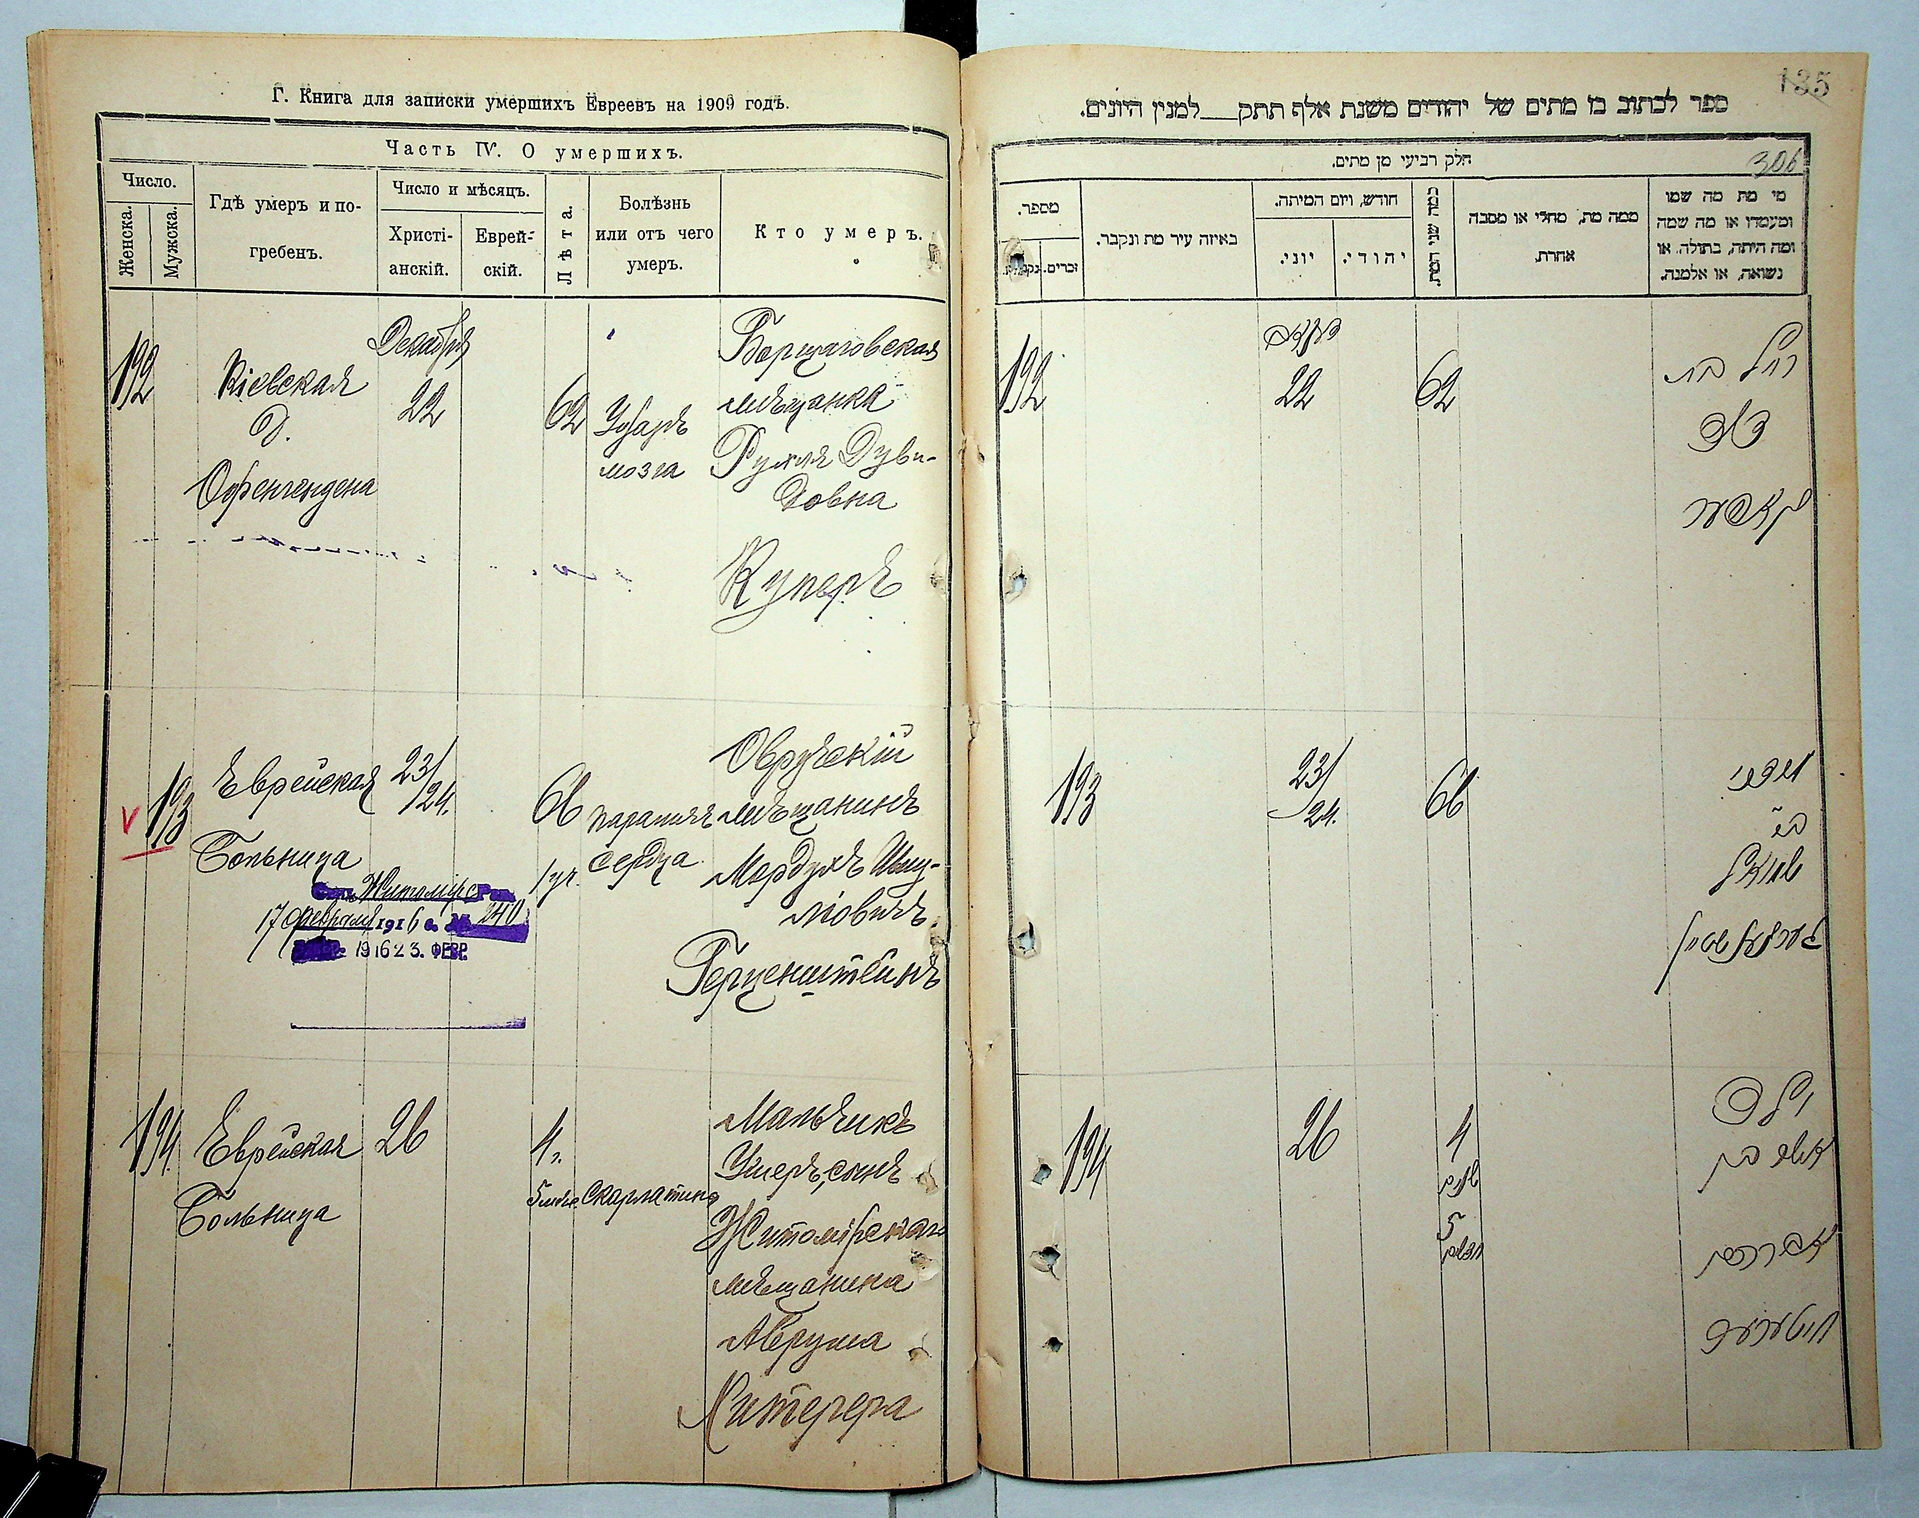 Г. Книга для записки умершихъ Евреевъ на 1909 годъ.
Часть IV. О умершихъ.
Число.
Женска.
Мужска.
Гдѣ умеръ и по-
гребенъ.
Число и мѣсяцъ.
Христі-
анскій.
Еврей-
скій.
Лѣта.
Болѣзнь
или отъ чего
умеръ.
Кто умеръ.
192
Кіевская
д.
Офенгендена
Декабря
22
62
Ударъ
мозга
Борщаговская
мѣщанка
Рухля Дуви-
довна
Куперъ
193
Еврейская
Больница
23/
24.
66
параличъ
сердца
Овручскій
мѣщанинъ
Мордухъ Шму-
ліовичъ
Герценштейнъ
Житомір
17 февраля 1916 г. № 240
1916 23. ФЕВР.
194
Еврейская
Больница
26
4
5
скарлатина
Мальчикъ
Ушеръ, сынъ
Житомірскаго
мѣщанина
Аврума
Хитерера
135
ספר לכתוב בו מתים של יהודים משנת אלף תתק למנין היונים.
306
חלק רביעי מן מתים.
מי מת מה שמו
ומעמדו או מה שמה
ומה היתה, בתולה, או
נשואה, או אלמנה.
ממה מת, מחלי או מסבה
אחרת.
כמה שני המת.
חודש, ויום המיתה.
יהודי.
יוני.
באיזה עיר מת ונקבר.
מספר.
זכרים.
נקבות.
רחל בת
דוד
קאפער
62
דעקאב
22
192
מרדכי
ב״ר
שמואל
הערצענשטיין
66
23/
24.
193
ילד
אשר בן
אברהם
חיטערער
4
שנים
5
חדשים
26
194